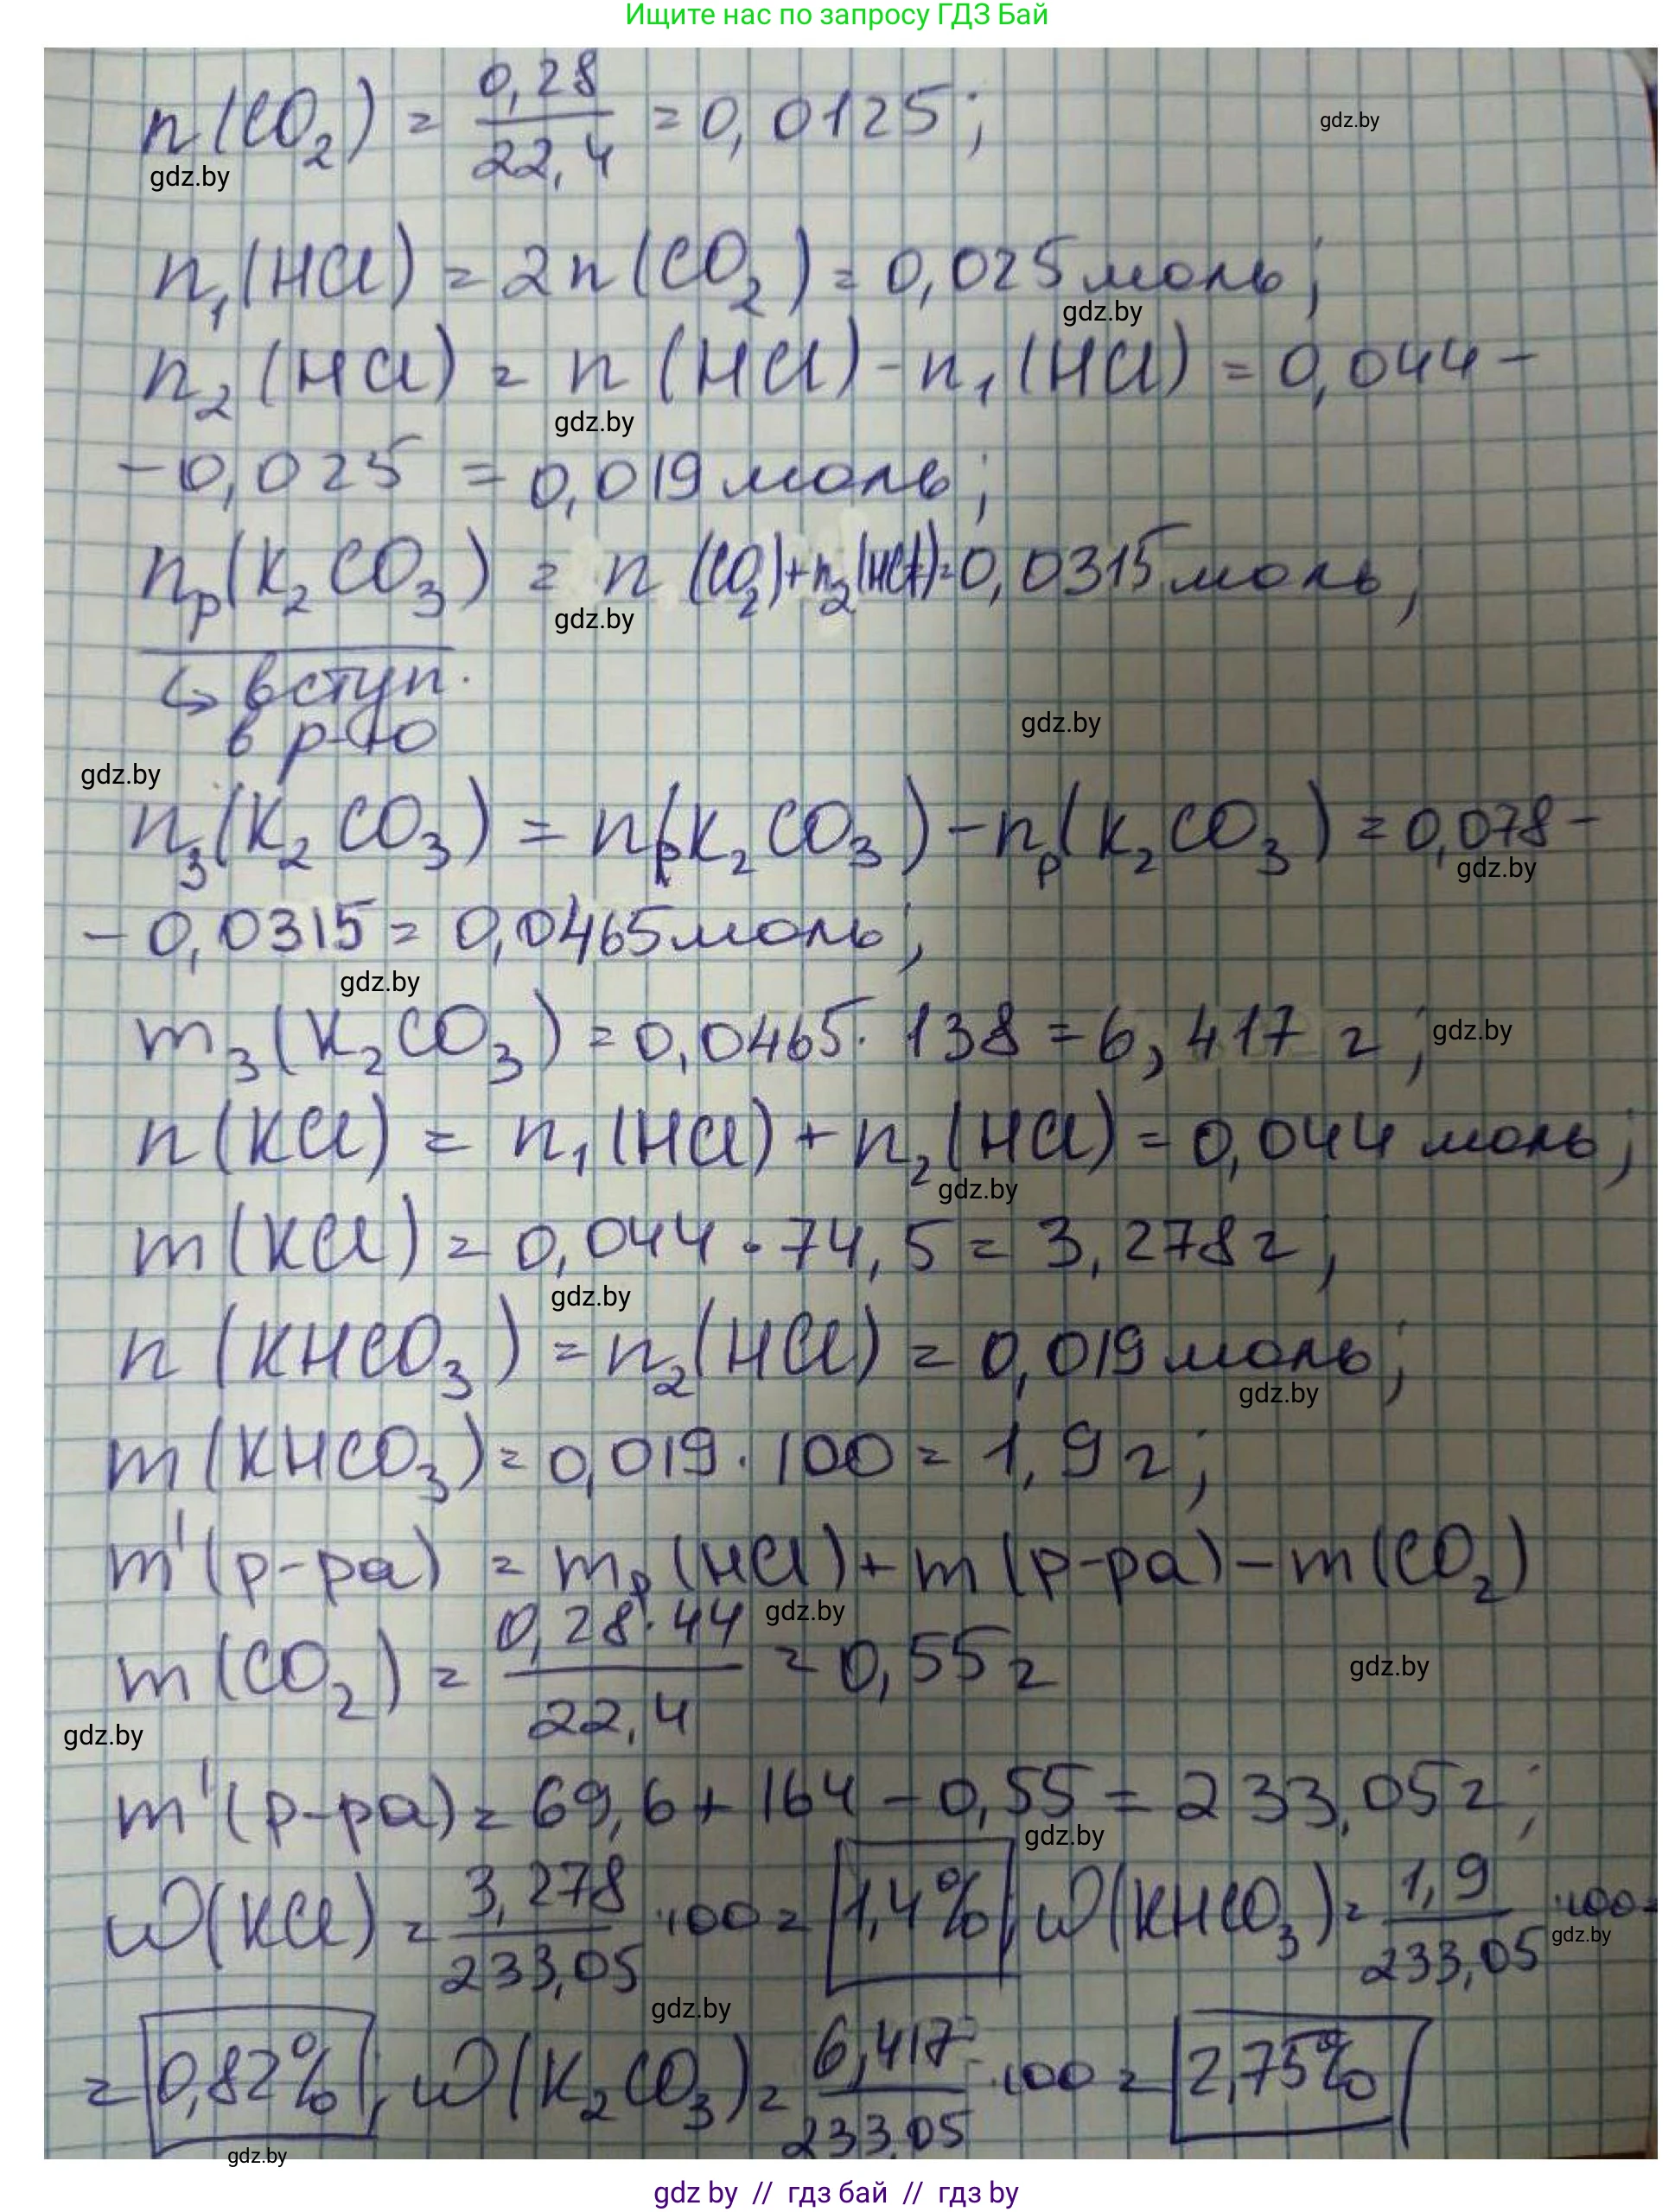 Ищите нас по запросу ГДЗ Бай
n(CO₂) = 0,28/22,4 = 0,0125;
gdz.by
gdz.by
n₁(HCl) = 2n(CO₂) = 0,025 моль;
gdz.by
n₂(HCl) = n(HCl) - n₁(HCl) = 0,044 -
gdz.by
- 0,025 = 0,019 моль;
nₚ(K₂CO₃) = n(CO₂)+n₂(HCl)=0,0315 моль;
gdz.by
↳ вступ.
в р-ю
gdz.by
gdz.by
n₃(K₂CO₃) = n(K₂CO₃) - nₚ(K₂CO₃) = 0,078 -
gdz.by
- 0,0315 = 0,0465 моль;
gdz.by
m₃(K₂CO₃) = 0,0465 · 138 = 6,417 г;
gdz.by
n(KCl) = n₁(HCl) + n₂(HCl) = 0,044 моль;
gdz.by
m(KCl) = 0,044 · 74,5 = 3,278 г;
gdz.by
n(KHCO₃) = n₂(HCl) = 0,019 моль;
gdz.by
m(KHCO₃) = 0,019 · 100 = 1,9 г;
m'(р-ра) = mₚ(HCl) + m(р-ра) - m(CO₂)
gdz.by
m(CO₂) = 0,28·44/22,4 = 0,55 г
gdz.by
gdz.by
m'(р-ра) = 69,6 + 164 - 0,55 = 233,05 г;
gdz.by
ω(KCl) = 3,278/233,05 ·100 = 1,4%; ω(KHCO₃) = 1,9/233,05 ·100=
gdz.by
gdz.by
= 0,82%; ω(K₂CO₃) = 6,417/233,05 ·100 = 2,75%
gdz.by
gdz by // гдз бай // гдз by